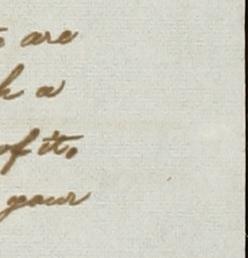 are
a
of it.
your